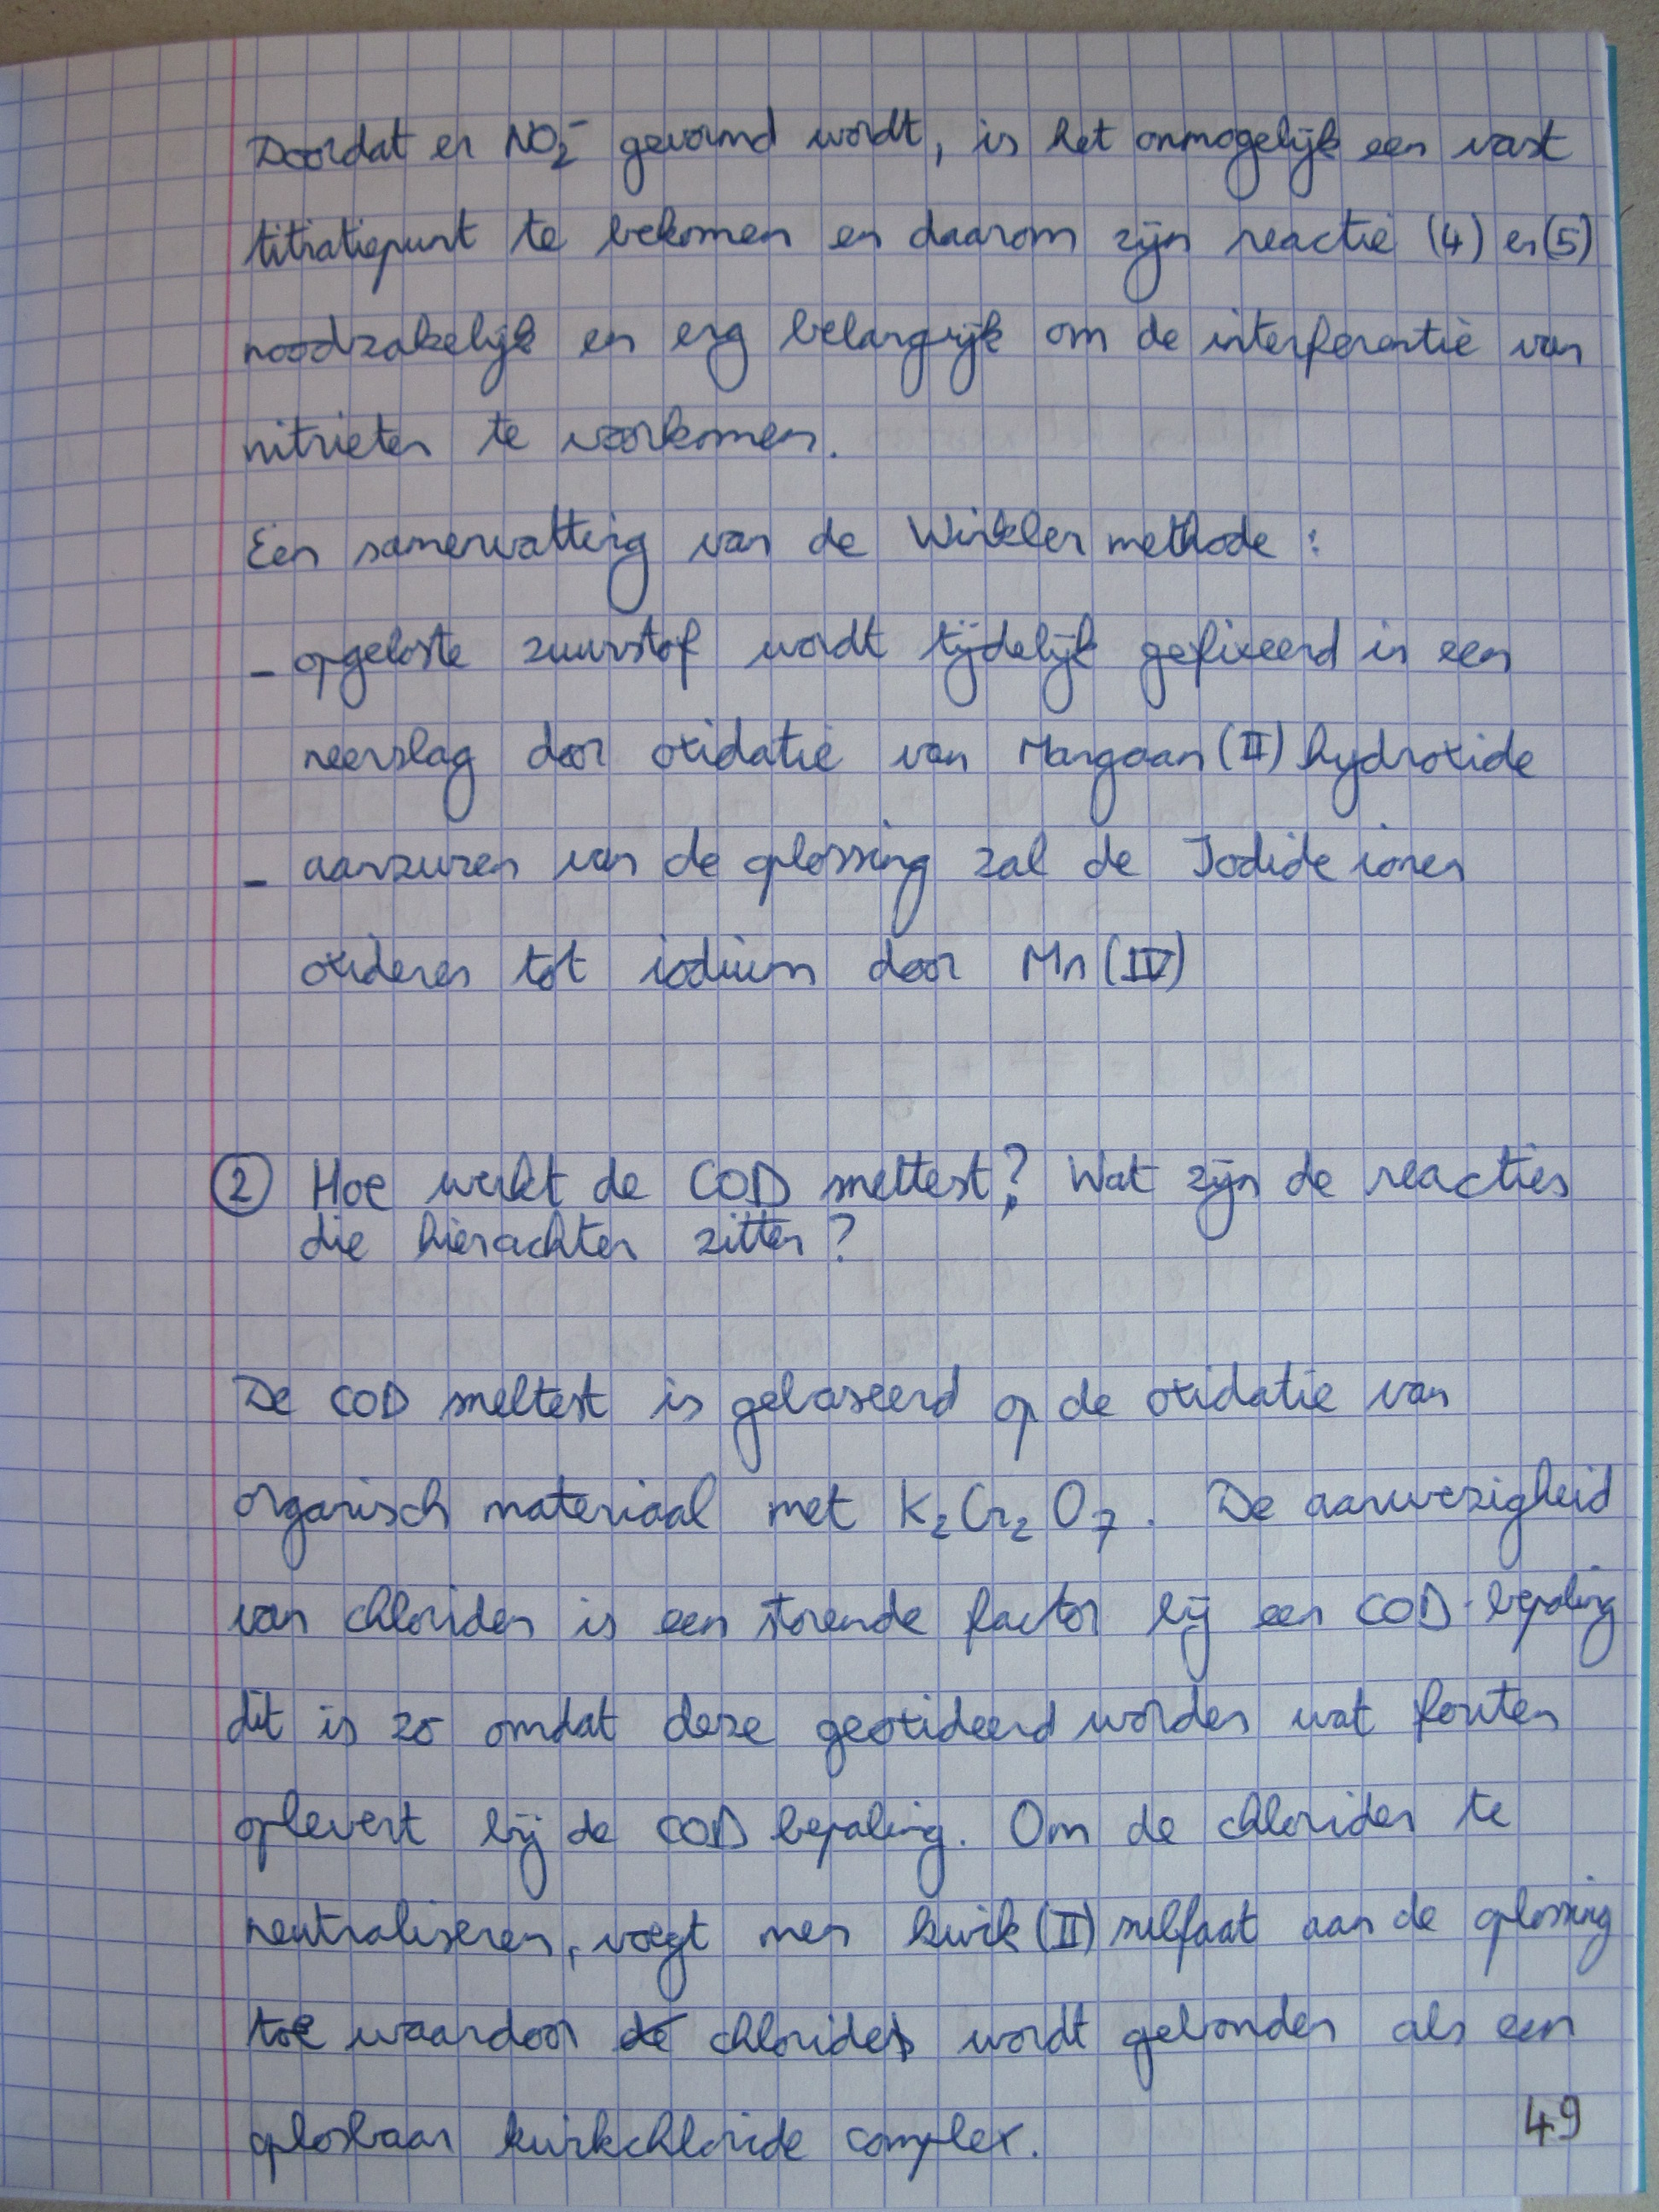 Doordat er NO₂⁻ gevormd wordt, is het onmogelijk een vast
titratiepunt te bekomen en daarom zijn reactie (4) en (5)
noodzakelijk en erg belangrijk om de interferentie van
nitrieten te voorkomen.
Een samenvatting van de Winkler methode :
- opgeloste zuurstof wordt tijdelijk gefixeerd in een
neerslag door oxidatie van Mangaan (II) hydroxide
- aanzuren van de oplossing zal de Jodide ionen
oxideren tot iodium door Mn (IV)
② Hoe werkt de COD sneltest? Wat zijn de reacties
die hierachter zitten?
De COD sneltest is gebaseerd op de oxidatie van
organisch materiaal met K₂Cr₂O₇. De aanwezigheid
van chloriden is een storende factor bij een COD-bepaling
dit is zo omdat deze geoxideerd worden wat fouten
oplevert bij de COD bepaling. Om de chloriden te
neutraliseren, voegt men kwik (II) sulfaat aan de oplossing
toe waardoor de chlorides wordt gebonden als een
oplosbaar kwikchloride complex.
49